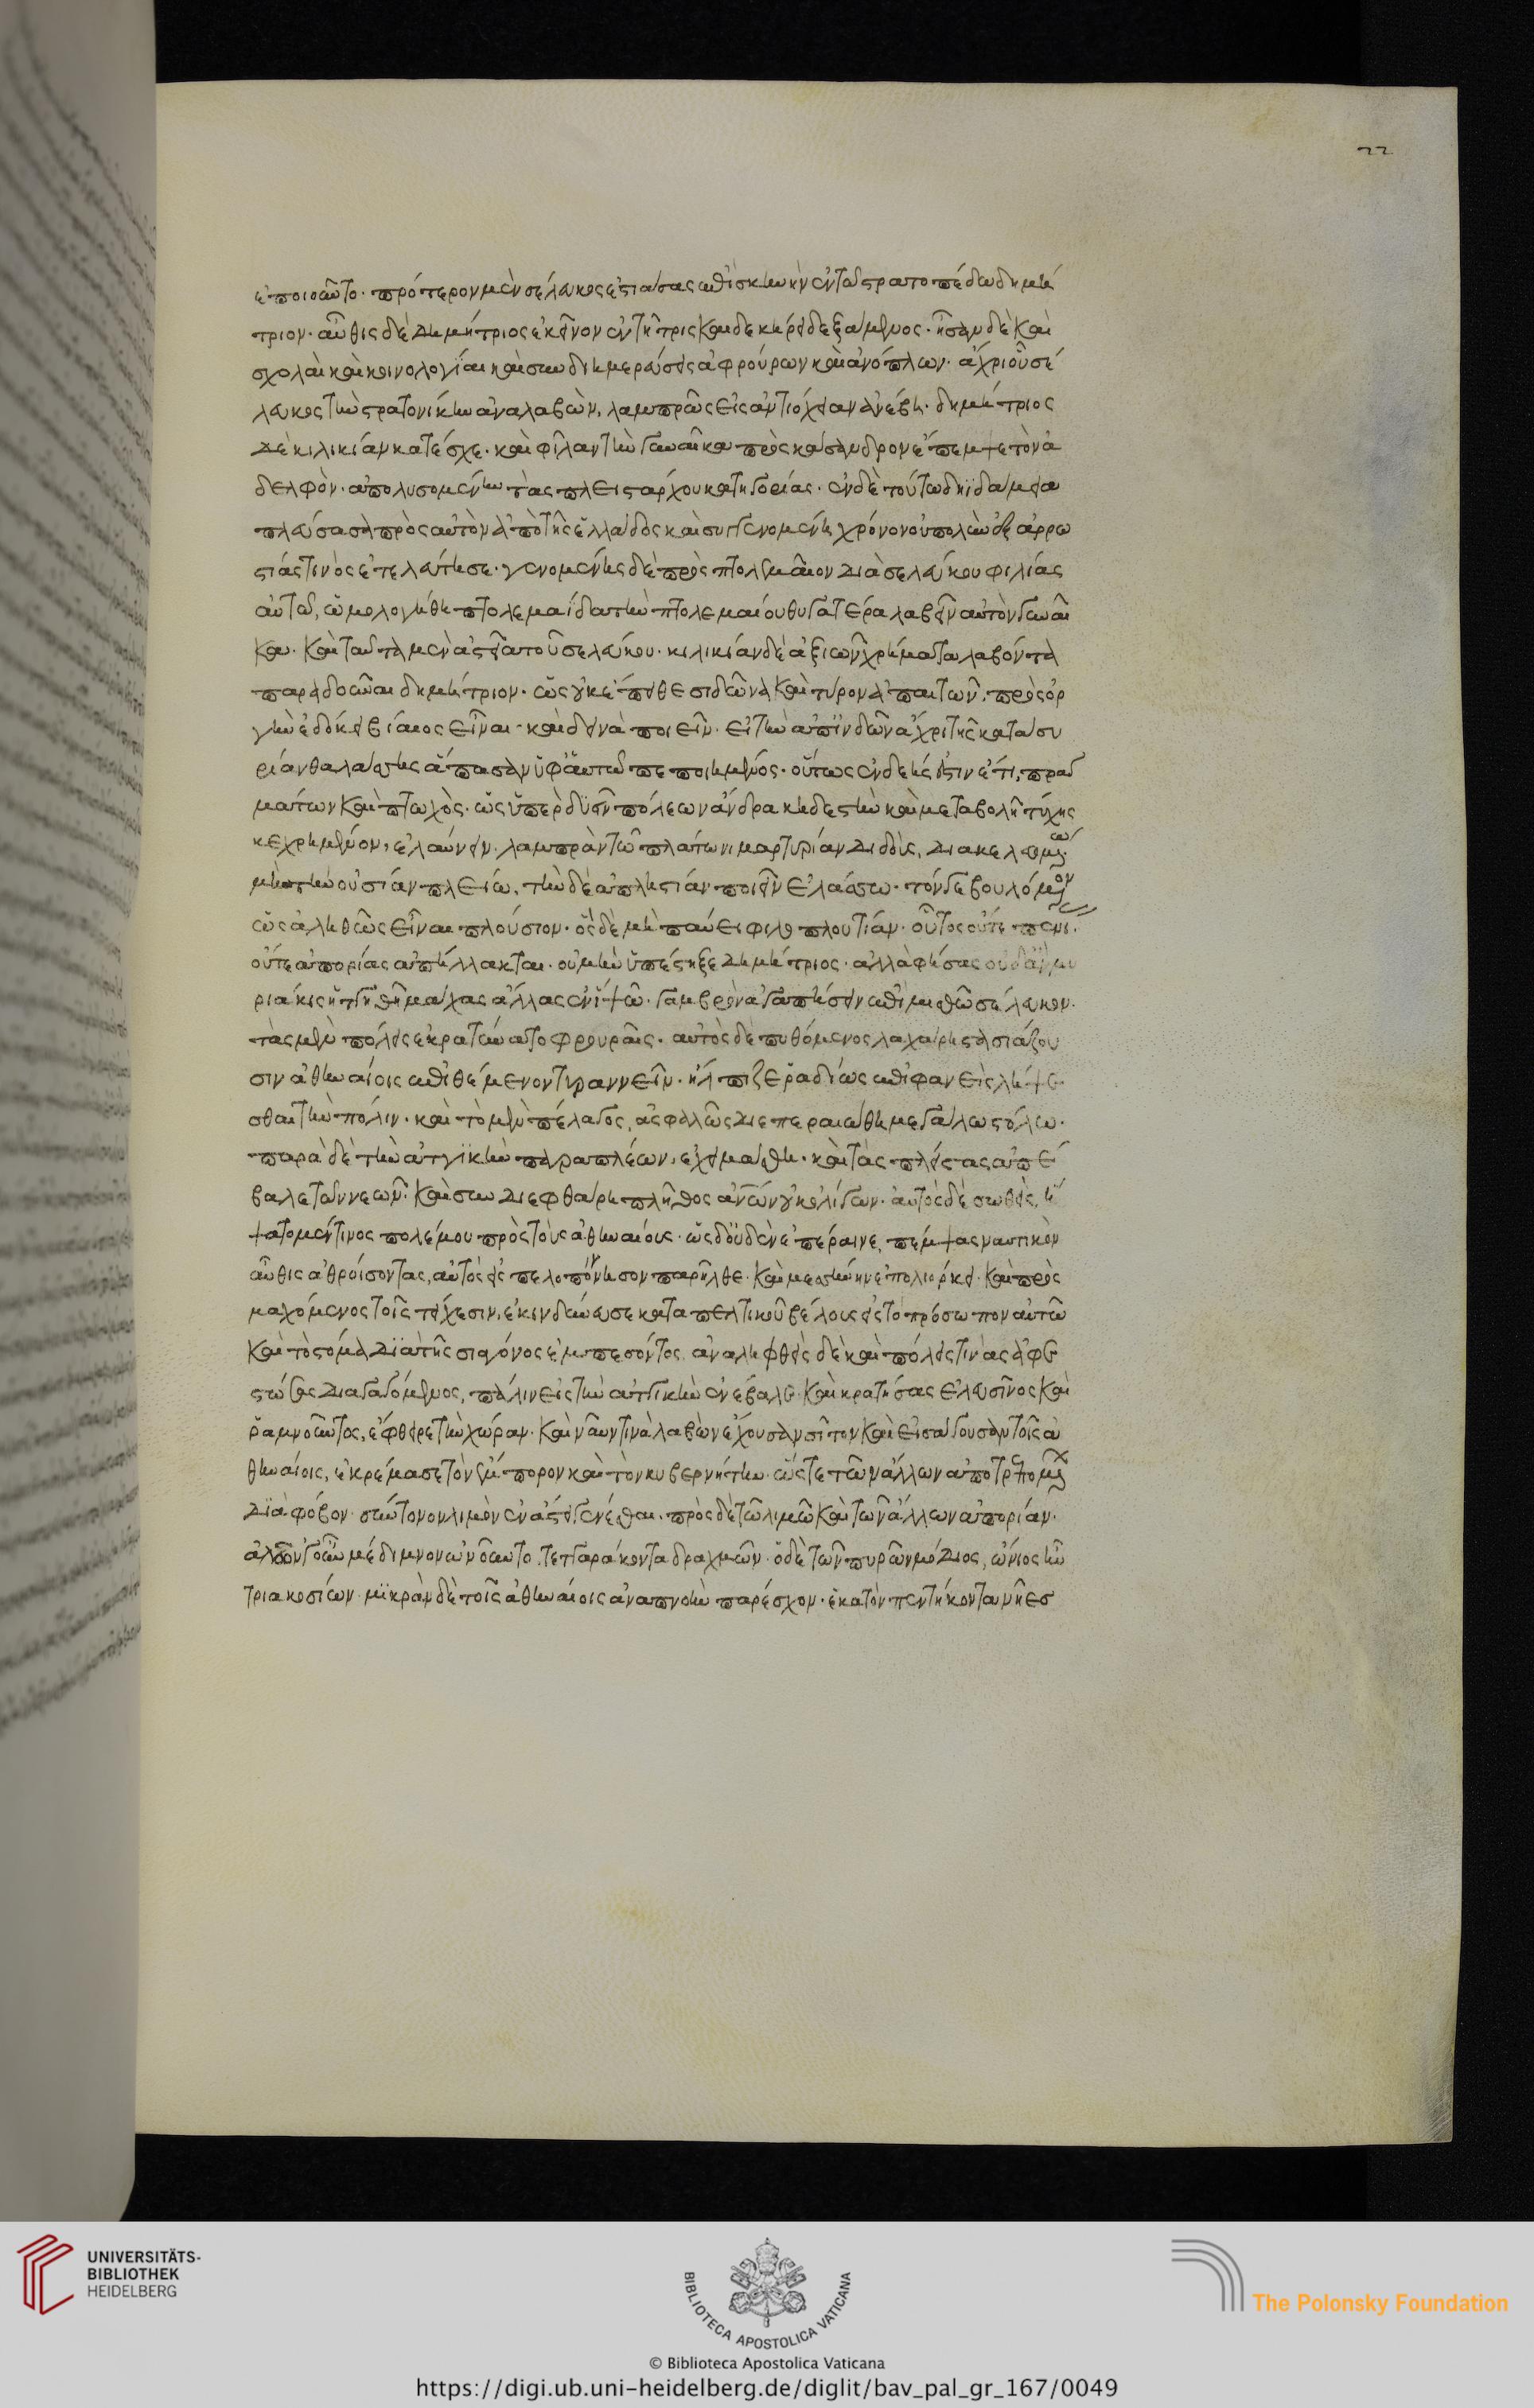 22
ἐποιοῦντο· πρότερον μὲν σέλευκος ἑστιάσας ἐπὶ σκηνὴν ἐν τῶ στρατοπέδω δημή
τριον· αὖθις δὲ δημήτριος ἐκεῖνον ἐν τῆ τρισκαιδεκήρει δεξάμενος· ἦσαν δὲ καὶ
σχολαὶ καὶ κοινολογίαι καὶ συνδιημερεύσεις ἀφρούρων καὶ ἀνόπλων· ἄχρι οὗ σέ
λευκος τὴν στρατονίκην ἀναλαβὼν, λαμπρῶς εἰς ἀντιόχειαν ἀνέβη· δημήτριος
δὲ κιλικίαν κατέσχε· καὶ φίλαν τὴν γυναῖκα πρὸς κάσανδρον ἔπεμψε τὸν ἀ
δελφὸν· ἀπολυσομένην τὰς πλειστάρχου κατηγορίας· ἐν δὲ τούτω δηϊδάμεια
πλεύσασα πρὸς αὐτὸν ἀπὸ τῆς ἑλλάδος καὶ συγγενομένη χρόνον οὐ πολὺν ἐξ ἀρρω
στίας τινὸς ἐτελεύτησε· γενομένης δὲ πρὸς πτολεμαῖον διὰ σελεύκου φιλίας
αὐτῶ, ὡμολογήθη πτολεμαίδα τὴν πτολεμαίου θυγατέρα λαβεῖν αὐτὸν γυναῖ
κα· καὶ ταῦτα μὲν ἀστεῖα τοῦ σελεύκου· κιλικίαν δὲ ἀξιῶν χρήματα λαβόντα
παραδοῦναι δημήτριον· ὡς οὐκ ἔπειθε σιδῶνα καὶ τύρον ἀπαιτῶν, πρὸς ὀρ
γὴν ἐδόκει βίαιος εἶναι· καὶ δεινὰ ποιεῖν· εἰ τὴν ἀπ ἰνδῶν ἄχρι τῆς κατὰ συ
ρίαν θαλάσσης ἅπασαν ὑφ αὑτῶ πεποιημένος· οὕτως ἐνδεής ἐστιν ἔτι, πραγ
μάτων καὶ πτωχὸς· ὡς ὑπὲρ δυεῖν πόλεων ἄνδρα κηδεστὴν καὶ μεταβολῆ τύχης
κεχρημένον, ἐλαύνειν· λαμπρὰν τῶ πλάτωνι μαρτυρίαν διδοὺς, διακελευομένω
μὴ τὴν οὐσίαν πλείω, τὴν δὲ ἀπληστίαν ποιεῖν ἐλάσσω· τόν γε βουλόμενον
ὡς ἀληθῶς εἶναι πλούσιον· ὡς ὁ δὲ μὴ παύει φιλοπλουτίαν· οὗτος οὔτε πενί
οὔτε ἀπορίας ἀπήλλακται· οὐ μὴν ὑπέπτηξε δημήτριος· ἀλλὰ φήσας οὐδ ἂν μυ
ριάκις ἡττηθῆ μάχας ἄλλας ἐν ἴψω· γαμβρὸν ἀγαπήσειν ἐπὶ μισθῶ σέλευκον·
τὰς μὲν πόλεις ἐκρατύνατο φρουραῖς· αὐτὸς δὲ πυθόμενος λαχάρη στασιάζου
σιν ἀθηναίοις ἐπιθέμενον τυραννεῖν· ἤλπιζε ῥαδίως ἐπιφανεὶς λήψε
σθαι τὴν πόλιν· καὶ τὸ μὲν πέλαγος, ἀσφαλῶς διεπεραιώθη μεγάλω στόλω·
παρὰ δὲ τὴν ἀττικὴν παραπλέων, ἐχειμάσθη· καὶ τὰς πλείστας ἀπέ
βαλε τῶν νεῶν· καὶ συνδιεφθάρη πλῆθος ἀνθρώπων οὐκ ὀλίγων· αὐτὸς δὲ σωθεὶς, ἥ
ψατο μέν τινος πολέμου πρὸς τοὺς ἀθηναίους· ὡς δ οὐδὲν ἐπέραινε, πέμψας ναυτικὸν
αὖθις ἀθροίσοντας, αὐτὸς εἰς πελοπόννησον παρῆλθε· καὶ μεσσήνην ἐπολιόρκει· καὶ προς
μαχόμενος τοῖς τείχεσιν, ἐκινδύνευσε καταπελτικοῦ βέλους εἰς τὸ πρόσωπον αὐτῶ
καὶ τὸ στόμα διὰ τῆς σιαγόνος ἐμπεσόντος. ἀναληφθεὶς δὲ καὶ πόλεις τινὰς ἀφε
στώσας διαγαγόμενος, πάλιν εἰς τὴν ἀττικὴν ἐνέβαλε· καὶ κρατήσας ἐλευσῖνος καὶ
ῥαμνοῦντος, ἔφθειρε τὴν χώραν· καὶ ναῦν τινὰ λαβὼν ἔχουσαν σῖτον καὶ εἰσάγουσαν τοῖς ἀ
θηναίοις, ἐκρέμασε τὸν ἔμπορον καὶ τὸν κυβερνήτην· ὥστε τῶν ἄλλων ἀποτρεπομένων
διὰ φόβον· σύντονον λιμὸν ἐν ἄστει γενέσθαι· πρὸς δὲ τῶ λιμῶ καὶ τῶν ἄλλων ἀπορίαν·
ἁλῶν γοῦν μέδιμνον ὠνοῦντο τετταράκοντα δραχμῶν· ὁ δὲ τῶν πυρῶν μόδιος, ὤνιος ἦν
τριακοσίων· μικρὰν δὲ τοῖς ἀθηναίοις ἀναπνοὴν παρέσχον· ἑκατὸν πεντήκοντα νῆες
UNIVERSITÄTS-
BIBLIOTHEK
HEIDELBERG
BIBLIOTECA APOSTOLICA VATICANA
The Polonsky Foundation
© Biblioteca Apostolica Vaticana
https://digi.ub.uni-heidelberg.de/diglit/bav_pal_gr_167/0049